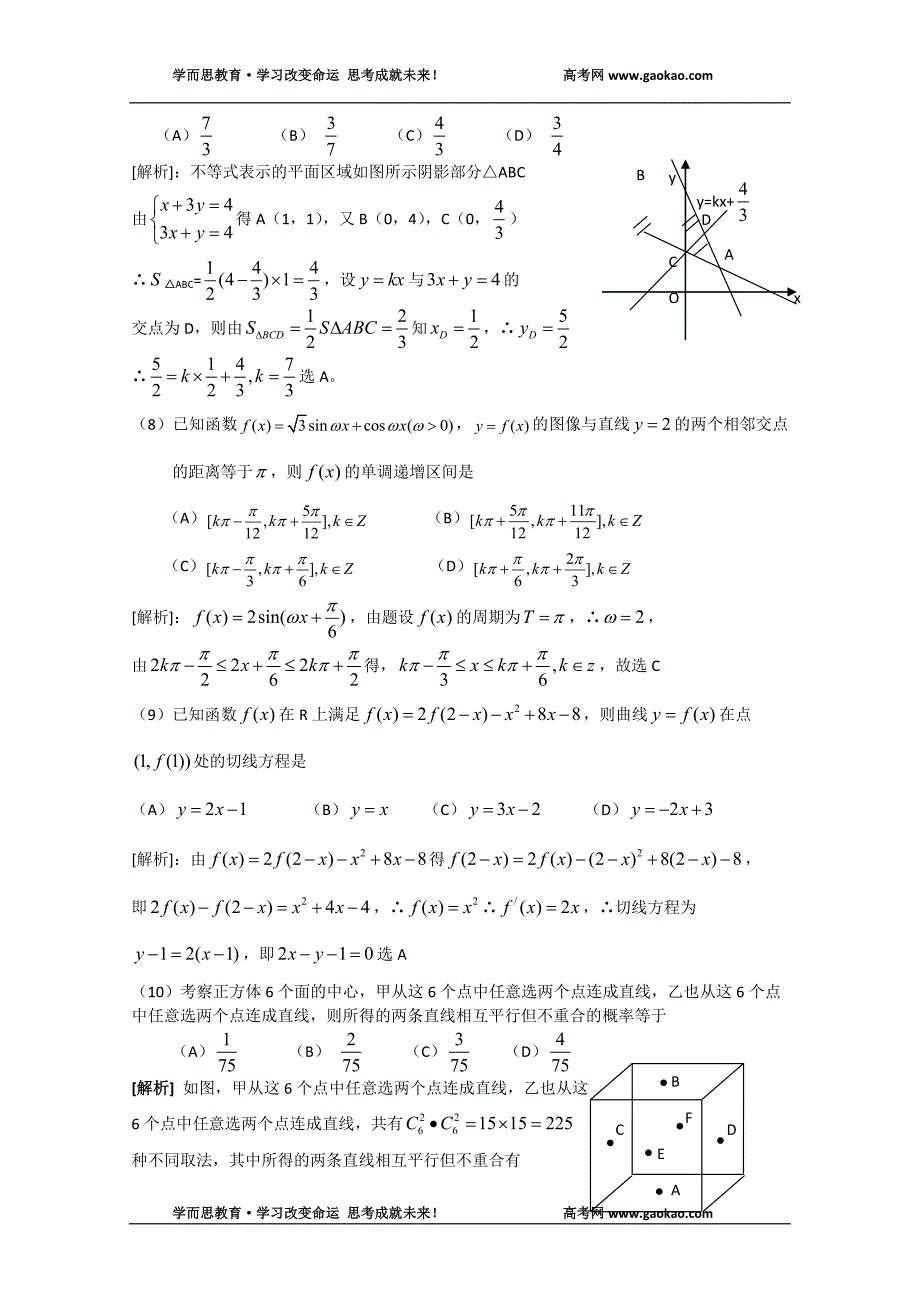 学而思教育·学习改变命运 思考成就未来! 高考网 www.gaokao.com
（A）$\frac{7}{3}$ （B） $\frac{3}{7}$ （C）$\frac{4}{3}$ （D） $\frac{3}{4}$
[解析]：不等式表示的平面区域如图所示阴影部分△ABC
由$\begin{cases}x+3y=4\\3x+y=4\end{cases}$得 A（1，1），又 B（0，4），C（0，$\frac{4}{3}$）
∴$S$ △ABC=$\frac{1}{2}(4-\frac{4}{3})\times 1=\frac{4}{3}$，设$y=kx$与$3x+y=4$的
交点为 D，则由$S_{\Delta BCD}=\frac{1}{2}S\Delta ABC=\frac{2}{3}$知$x_D=\frac{1}{2}$，∴$y_D=\frac{5}{2}$
∴$\frac{5}{2}=k\times\frac{1}{2}+\frac{4}{3},k=\frac{7}{3}$选 A。
B
y
y=kx+$\frac{4}{3}$
D
C
A
O
x
（8）已知函数$f(x)=\sqrt{3}\sin\omega x+\cos\omega x(\omega>0)$，$y=f(x)$的图像与直线$y=2$的两个相邻交点
的距离等于$\pi$，则$f(x)$的单调递增区间是
（A）$[k\pi-\frac{\pi}{12},k\pi+\frac{5\pi}{12}],k\in Z$ （B）$[k\pi+\frac{5\pi}{12},k\pi+\frac{11\pi}{12}],k\in Z$
（C）$[k\pi-\frac{\pi}{3},k\pi+\frac{\pi}{6}],k\in Z$ （D）$[k\pi+\frac{\pi}{6},k\pi+\frac{2\pi}{3}],k\in Z$
[解析]：$f(x)=2\sin(\omega x+\frac{\pi}{6})$，由题设$f(x)$的周期为$T=\pi$，∴$\omega=2$，
由$2k\pi-\frac{\pi}{2}\le 2x+\frac{\pi}{6}\le 2k\pi+\frac{\pi}{2}$得，$k\pi-\frac{\pi}{3}\le x\le k\pi+\frac{\pi}{6},k\in z$，故选 C
（9）已知函数$f(x)$在 R 上满足$f(x)=2f(2-x)-x^2+8x-8$，则曲线$y=f(x)$在点
$(1,f(1))$处的切线方程是
（A）$y=2x-1$ （B）$y=x$ （C）$y=3x-2$ （D）$y=-2x+3$
[解析]：由$f(x)=2f(2-x)-x^2+8x-8$得$f(2-x)=2f(x)-(2-x)^2+8(2-x)-8$，
即$2f(x)-f(2-x)=x^2+4x-4$，∴$f(x)=x^2$∴$f^{/}(x)=2x$，∴切线方程为
$y-1=2(x-1)$，即$2x-y-1=0$选 A
（10）考察正方体 6 个面的中心，甲从这 6 个点中任意选两个点连成直线，乙也从这 6 个点
中任意选两个点连成直线，则所得的两条直线相互平行但不重合的概率等于
（A）$\frac{1}{75}$ （B） $\frac{2}{75}$ （C）$\frac{3}{75}$ （D）$\frac{4}{75}$
[解析] 如图，甲从这 6 个点中任意选两个点连成直线，乙也从这
6 个点中任意选两个点连成直线，共有$C_6^2\bullet C_6^2=15\times 15=225$
种不同取法，其中所得的两条直线相互平行但不重合有
B
F
C
D
E
A
学而思教育·学习改变命运 思考成就未来! 高考网 www.gaokao.com